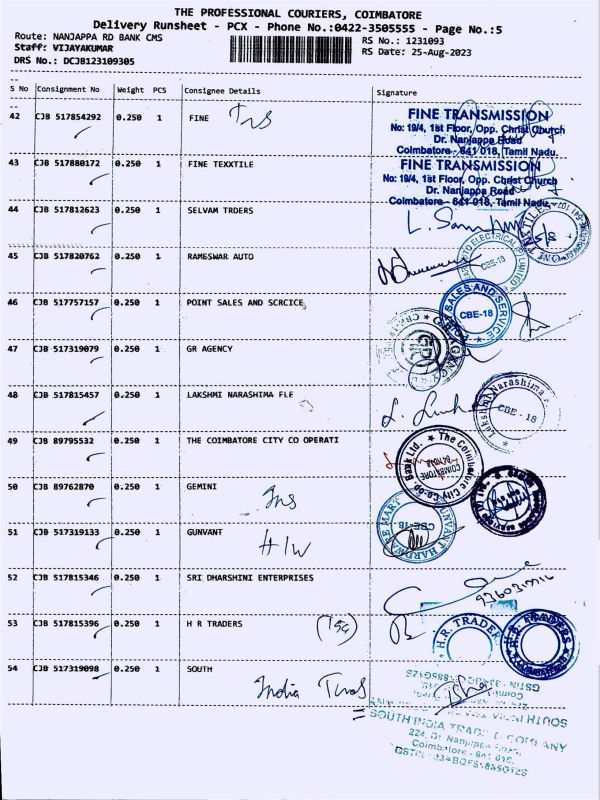 THE PROFESSIONAL COURIERS, COIMBATORE
Delivery Runsheet - PCX - Phone No.:0422-3505555 - Page No.:5
Route: NANJAPPA RD BANK CMS
RS No.: 1231093
Staff: VIJAYAKUMAR
RS Date: 25-Aug-2023
DRS No.: DCJB123109305
S No Consignment No Weight PCS Consignee Details Signature
42 CJB 517854292 0.250 1 FINE Tns
FINE TRANSMISSION
No: 19/4, 1st Floor, Opp. Christ Church
Dr. Nanjappa Road
Coimbatore - 641 018, Tamil Nadu.
43 CJB 517880172 0.250 1 FINE TEXXTILE
FINE TRANSMISSION
No: 19/4, 1st Floor, Opp. Christ Church
Dr. Nanjappa Road
Coimbatore - 641 018, Tamil Nadu.
44 CJB 517812623 0.250 1 SELVAM TRDERS
45 CJB 517820762 0.250 1 RAMESWAR AUTO
CBE-18
46 CJB 517757157 0.250 1 POINT SALES AND SCRCICE
SALES AND SERVICE
CBE-18
47 CJB 517319079 0.250 1 GR AGENCY
48 CJB 517815457 0.250 1 LAKSHMI NARASHIMA FLE
Lakshmi Narashima
CBE - 18
49 CJB 89795532 0.250 1 THE COIMBATORE CITY CO OPERATI
The Coimbatore City Co-op. Bank Ltd.
COIMBATORE
50 CJB 89762870 0.250 1 GEMINI Ins
51 CJB 517319133 0.250 1 GUNVANT H/W
GUNVANT HARDWARE MART
CBE-18
52 CJB 517815346 0.250 1 SRI DHARSHINI ENTERPRISES
53 CJB 517815396 0.250 1 H R TRADERS
H.R. TRADERS
H.R. TRADERS
54 CJB 517319098 0.250 1 SOUTH India Trads
SOUTH INDIA TRADING COMPANY
224, Dr. Nanjappa Road,
Coimbatore - 641 018.